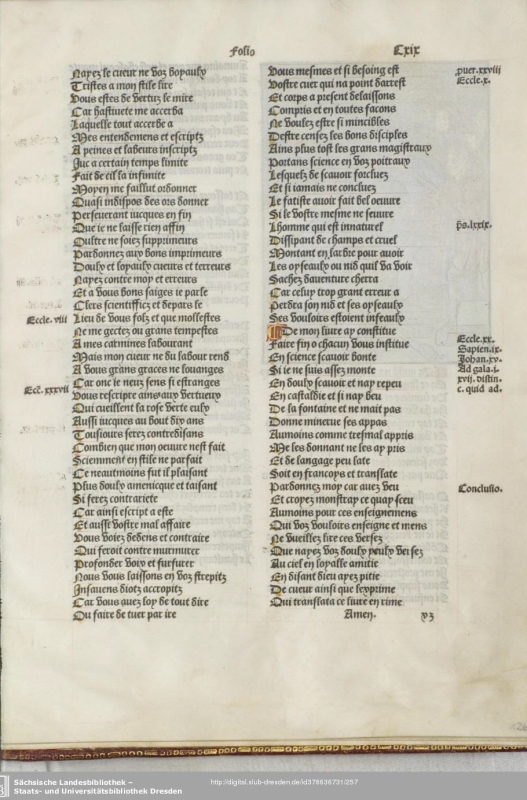 Folio Cxix
Nayez le cueur ne voz boyaulx
Tristes a mon stile lire
Vous estes de vertuz le mire
Car hastivete me accerba
Laquelle tout accerbe a
Mes entendemens et escriptz
A peines et labeurs inscriptz
Juc a certain temps limite
Fait de cil la infinite
Moyen me faillut ordonner
Quasi indispos des ors donner
Perseverant iucques en fin
Que ie ne laisse rien affin
Oultre ne soiez supprimeurs
Pardonnez aux bons imprimeurs
Doulx et loyaulx cueurs et terreurs
Nayez contre moy et erreurs
Et a vous bons saiges ie parle
Clers scientificz et depars le
Eccle. viii
Lieu de vous folz et que mollestes
Ne me gectez ou grans tempestes
A mes carmines labourant
Mais mon cueur ne du labour rend
A vous grans graces ne louanges
Ecc. xxxvii
Car onc ie neuz sens si estranges
Vous rescripre ains aux vertueux
Qui cueillent la rose verte eulx
Aussi iucques au bout dix ans
Tousiours serez contredisans
Combien que mon oeuvre nest fait
Sciemment en stile ne parfait
Ce neautmoins fut il plaisant
Plus doulx amenicque et taisant
Si serez contrariete
Car ainsi escript a este
Et aussi vostre mal affaire
Vous voiez dedens et contraire
Qui seroit contre murmurer
Profonder voix et fusurer
Nous vous laissons en voz strepitz
Insavens diotz accropitz
Car vous avez loy de tout dire
Ou faire de tuer par ire
Vous mesmes et si besoing est
puer. xxviii
Vostre cuer qui na point darrest
Eccle. x.
Et corps a present delaissons
Compris et en toutes facons
Ne voulez estre si mincibles
Destre censez les bons disciples
Ains plus tost les grans magistraux
Portans science en voz poitraux
Lesquelz de scavoir forcluez
Et si iamais ne concluez
Le fatiste avoit fait bel oeuvre
Si le vostre mesme ne seuvre
Lhomme qui est innaturel
ps. lxxix.
Dissipant de champs et cruel
Montant en larbre pour avoir
Les oyseaulx ou nid quil va voir
Sachez daventure cherra
Car celuy trop grant erreur a
Perdra son nid et ses oyseaulx
Ses vouloirs estoient infeaulx
De mon livre ay constitue
Faire fin o chacun vous institue
Eccle. xx.
En science scavoir bonte
Sapien. ix.
Si ie ne suis assez monte
Johan. xv.
En doulx scavoir et nay repeu
Ad gala. i.
En castallie et si nay beu
xvii. distin-
De la fontaine et ne mait pas
c. quid ad.
Donne minerve ses appas
Aumoins comme tresmal appris
Me les donnant ne les ay pris
Et de langage peu late
Soit en francoys et translate
Pardonnez moy car avez veu
Conclusio.
Et croyez monstray ce quay sceu
Aumoins pour ces enseignemens
Qui voz vouloirs enseigne et mens
Ne vueillez lire ces versez
Que nayez voz doulx yeulx versez
Au ciel en loyalle amitie
En disant dieu ayez pitie
De cueur ainsi que lexprime
Qui translata ce livre en rime
Amen. y3
Sächsische Landesbibliothek –
Staats- und Universitätsbibliothek Dresden
http://digital.slub-dresden.de/id378636731/257